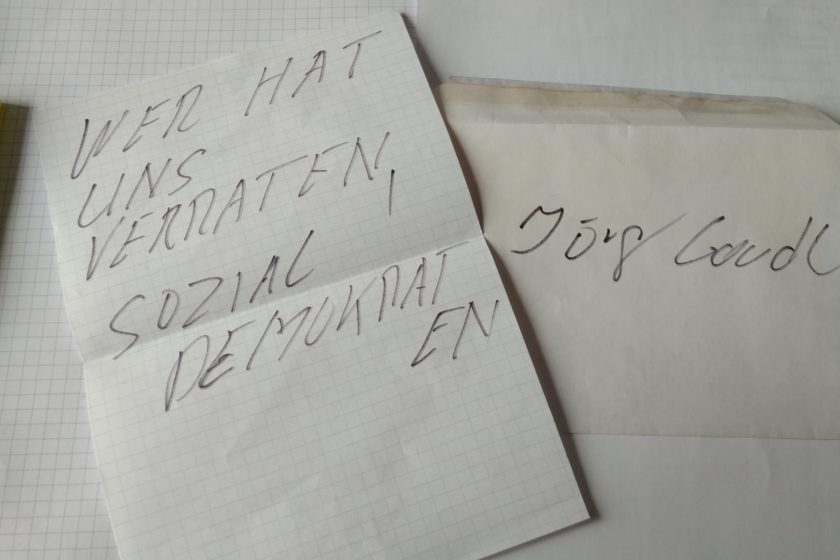 WER HAT
UNS
VERRATEN,
SOZIAL
DEMOKRAT
EN
Jörg